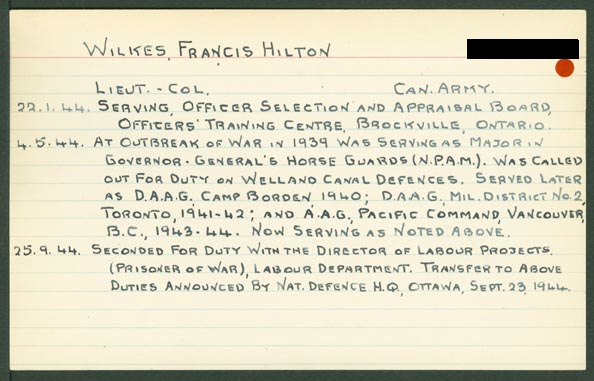 WILKES, FRANCIS HILTON
LIEUT.-COL. CAN. ARMY.
22.1.44. SERVING, OFFICER SELECTION AND APPRAISAL BOARD,
OFFICERS' TRAINING CENTRE, BROCKVILLE, ONTARIO.
4.5.44. AT OUTBREAK OF WAR IN 1939 WAS SERVING AS MAJOR IN
GOVERNOR-GENERAL'S HORSE GUARDS (N.P.A.M.). WAS CALLED
OUT FOR DUTY ON WELLAND CANAL DEFENCES. SERVED LATER
AS D.A.A.G. CAMP BORDEN, 1940; D.A.A.G., MIL. DISTRICT NO. 2,
TORONTO, 1941-42; AND A.A.G., PACIFIC COMMAND, VANCOUVER,
B.C., 1943-44. NOW SERVING AS NOTED ABOVE.
25.9.44. SECONDED FOR DUTY WITH THE DIRECTOR OF LABOUR PROJECTS.
(PRISONER OF WAR), LABOUR DEPARTMENT. TRANSFER TO ABOVE
DUTIES ANNOUNCED BY NAT. DEFENCE H.Q., OTTAWA, SEPT. 23, 1944.